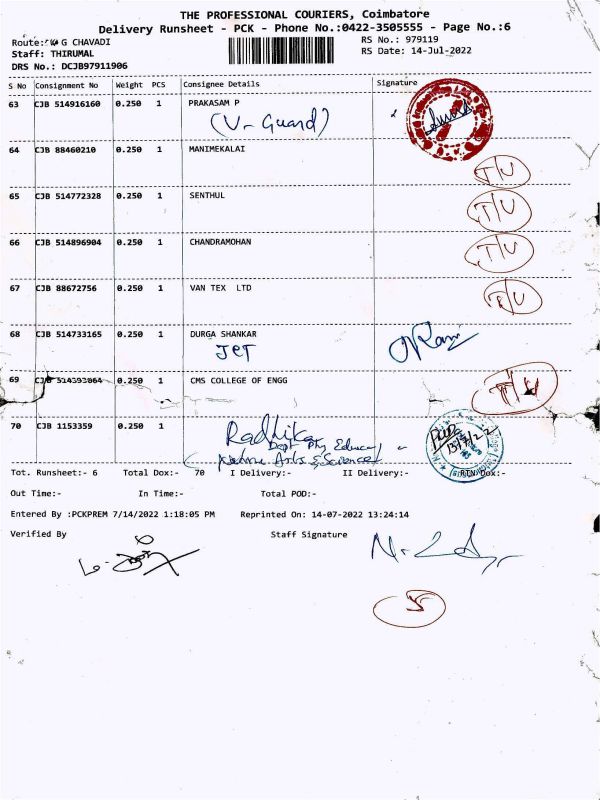 THE PROFESSIONAL COURIERS, Coimbatore
Delivery Runsheet - PCK - Phone No.:0422-3505555 - Page No.:6
Route: G CHAVADI
RS No.: 979119
Staff: THIRUMAL
RS Date: 14-Jul-2022
DRS No.: DCJB97911906
S No Consignment No Weight PCS Consignee Details Signature
63 CJB 514916160 0.250 1 PRAKASAM P
(V-Guard)
64 CJB 88460210 0.250 1 MANIMEKALAI
T/U
65 CJB 514772328 0.250 1 SENTHUL
T/U
66 CJB 514896904 0.250 1 CHANDRAMOHAN
T/U
67 CJB 88672756 0.250 1 VAN TEX LTD
T/U
68 CJB 514733165 0.250 1 DURGA SHANKAR
Jet
Ram
69 CJB 514393064 0.250 1 CMS COLLEGE OF ENGG
70 CJB 1153359 0.250 1
Radhika
Dept Phy Educa
Arts & Science
Tot. Runsheet:- 6 Total Dox:- 70 I Delivery:- II Delivery:- RTN Dox:-
Out Time:- In Time:- Total POD:-
Entered By :PCKPREM 7/14/2022 1:18:05 PM Reprinted On: 14-07-2022 13:24:14
Verified By Staff Signature